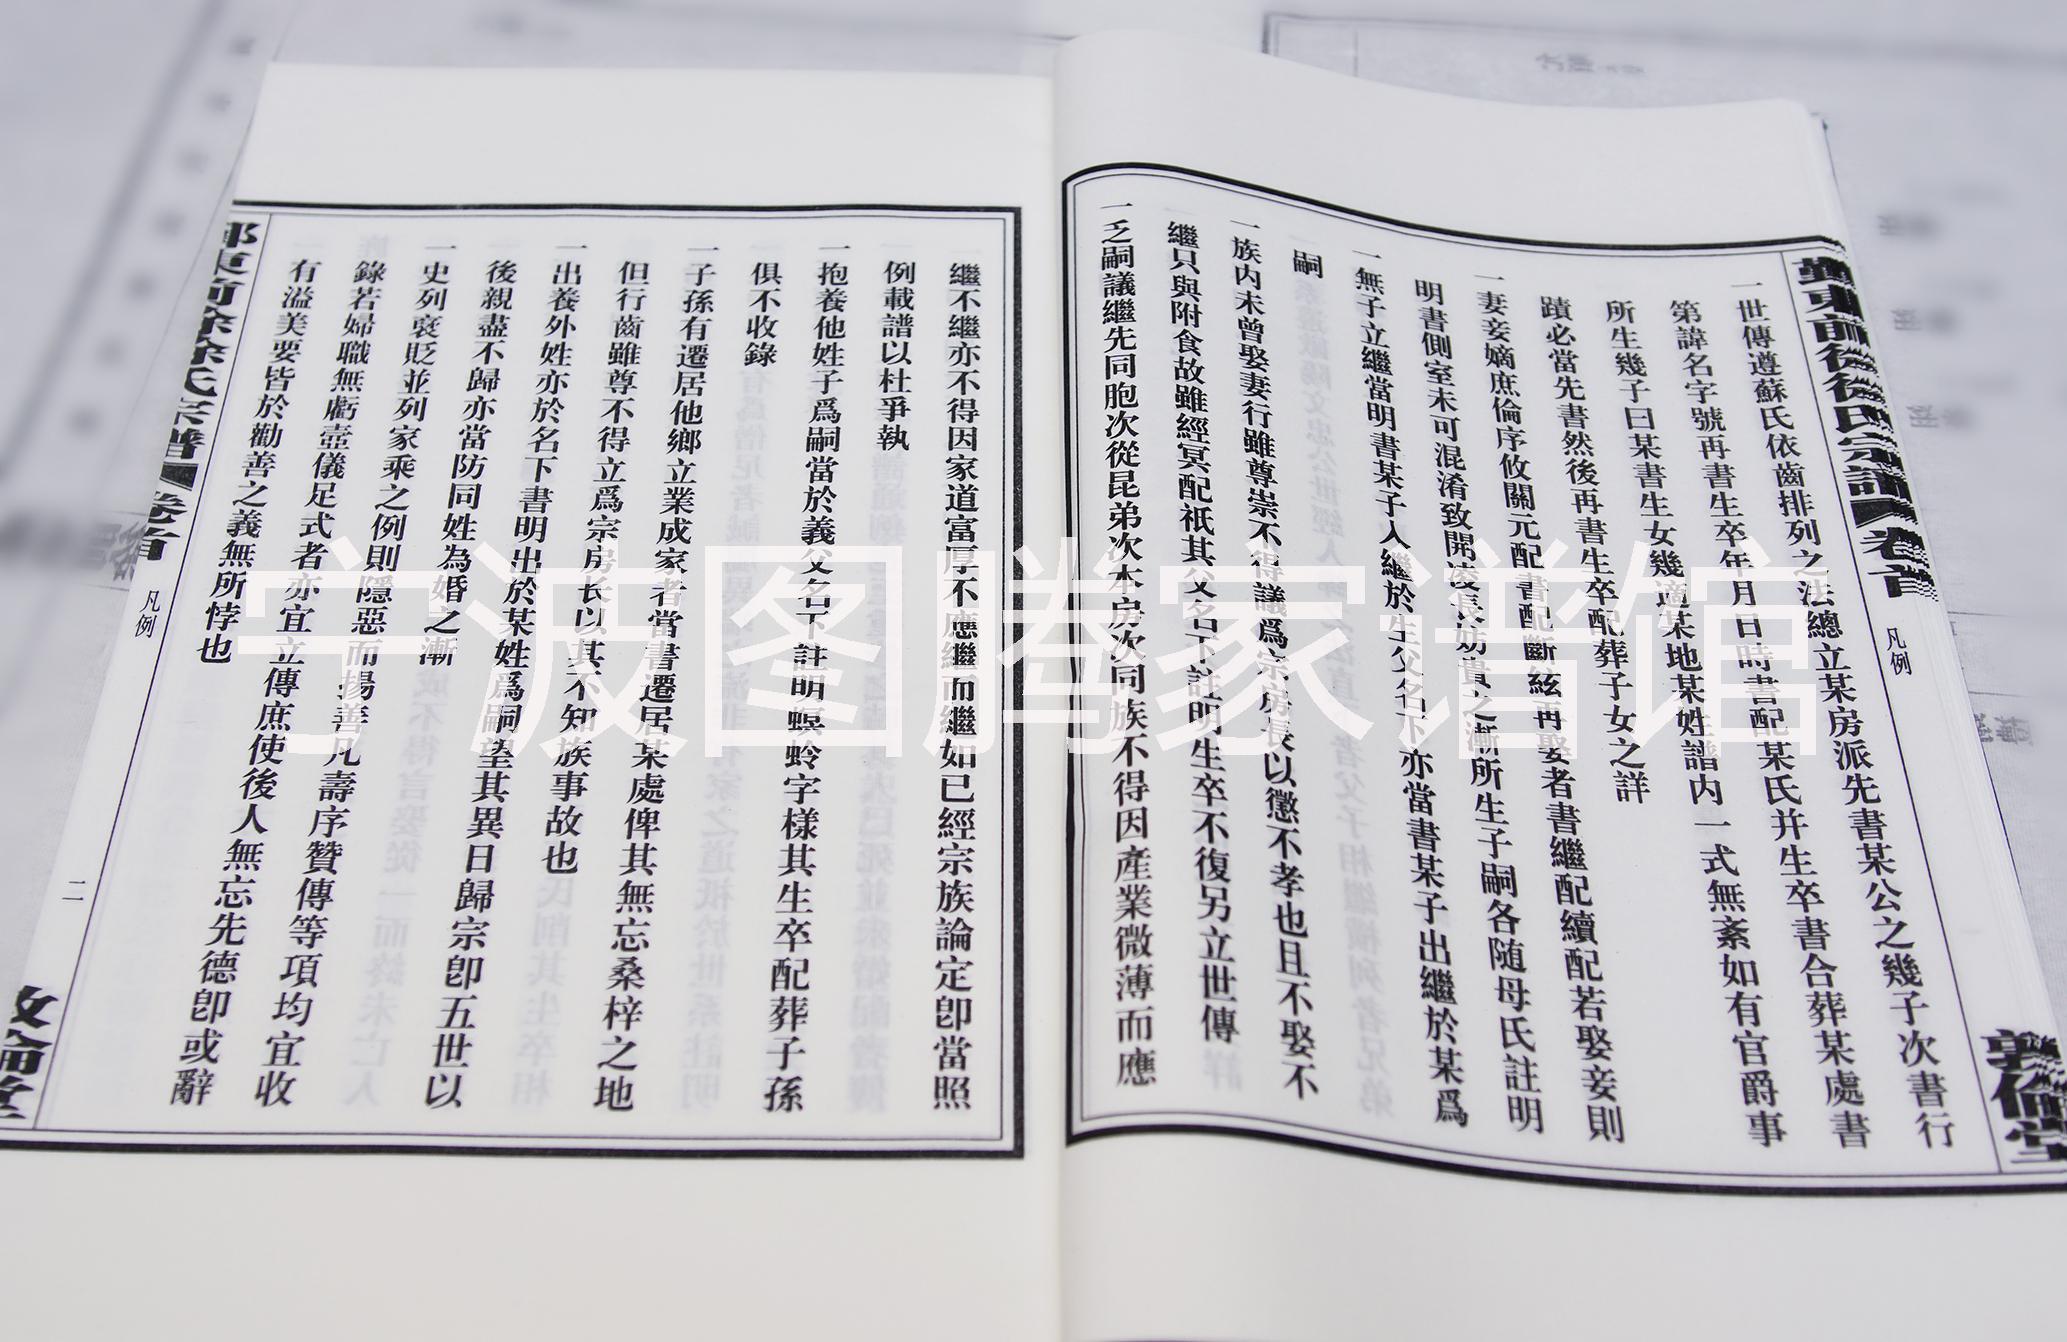 一世傳遵蘇氏依齒排列之法總立某房派先書某公之幾子次書行
第諱名字號再書生卒年月日時書配某氏并生卒書合葬某處書
所生幾子曰某書生女幾適某地某姓譜内一式無紊如有官爵事
蹟必當先書然後再書生卒配葬子女之詳
一妻妾嫡庶倫序攸關元配書配斷絃再娶者書繼配續配若娶妾則
明書側室未可混淆致開凌長妨貴之漸所生子嗣各随母氏註明
一無子立繼當明書某子入繼於生父名下亦當書某子出繼於某爲
嗣
一族内未曾娶妻行雖尊崇不得議爲宗房長以懲不孝也且不娶不
繼只與附食故雖經冥配祇其父名下註明生卒不復另立世傳
一乏嗣議繼先同胞次從昆弟次本房次同族不得因產業微薄而應
凡例
敦倫堂
繼不繼亦不得因家道富厚不應繼而繼如已經宗族論定卽當照
例載譜以杜爭執
一抱養他姓子爲嗣當於義父名下註明螟蛉字樣其生卒配葬子孫
俱不收錄
一子孫有遷居他鄉立業成家者當書遷居某處俾其無忘桑梓之地
但行齒雖尊不得立爲宗房长以其不知族事故也
一出養外姓亦於名下書明出於某姓爲嗣望其異日歸宗卽五世以
後親盡不歸亦當防同姓為婚之漸
一史列袞貶並列家乘之例則隱惡而揚善凡壽序贊傳等項均宜收
錄若婦職無虧壼儀足式者亦宜立傳庶使後人無忘先德卽或辭
有溢美要皆於勸善之義無所悖也
徐氏宗譜 卷首
凡例
二
宁波图腾家谱馆